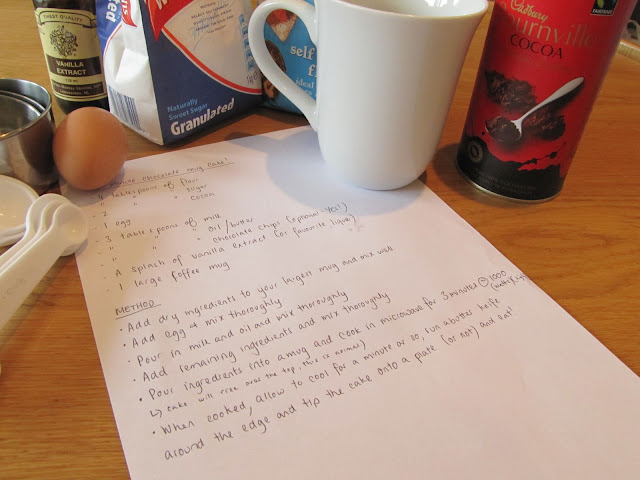 FINEST QUALITY
VANILLA
EXTRACT
Naturally
Sweet Sugar
Granulated
self
fl
ideal
Cadbury
ournville
COCOA
FAIRTRADE
Chocolate Mug Cake!
- 4 tablespoons of flour
- 2 " " sugar
- " " cocoa
- 1 egg
- 3 tablespoons of milk
- " " oil/butter
- " " chocolate chips (optional - Yes!)
- A splash of vanilla extract (or favorite liquor)
- 1 large coffee mug
METHOD
• Add dry ingredients to your largest mug and mix well
• Add egg & mix thoroughly
• Pour in milk and oil and mix thoroughly
• Add remaining ingredients and mix thoroughly
• Pour ingredients into a mug and cook in microwave for 3 minutes @ 1000
↳ cake will rise over the top, this is normal)
• When cooked, allow to cool for a minute or so, run a butter knife
around the edge and tip the cake onto a plate (or not) and eat!